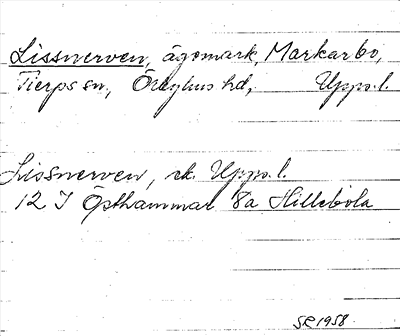 Lissnerven, ägomark, Markarbo,
Tierps sn, Örbyhus hd, Upps.l.
Lissnerven, ek. Upps.l.
12 I Östhammar 8a Hillebola
SR 1958